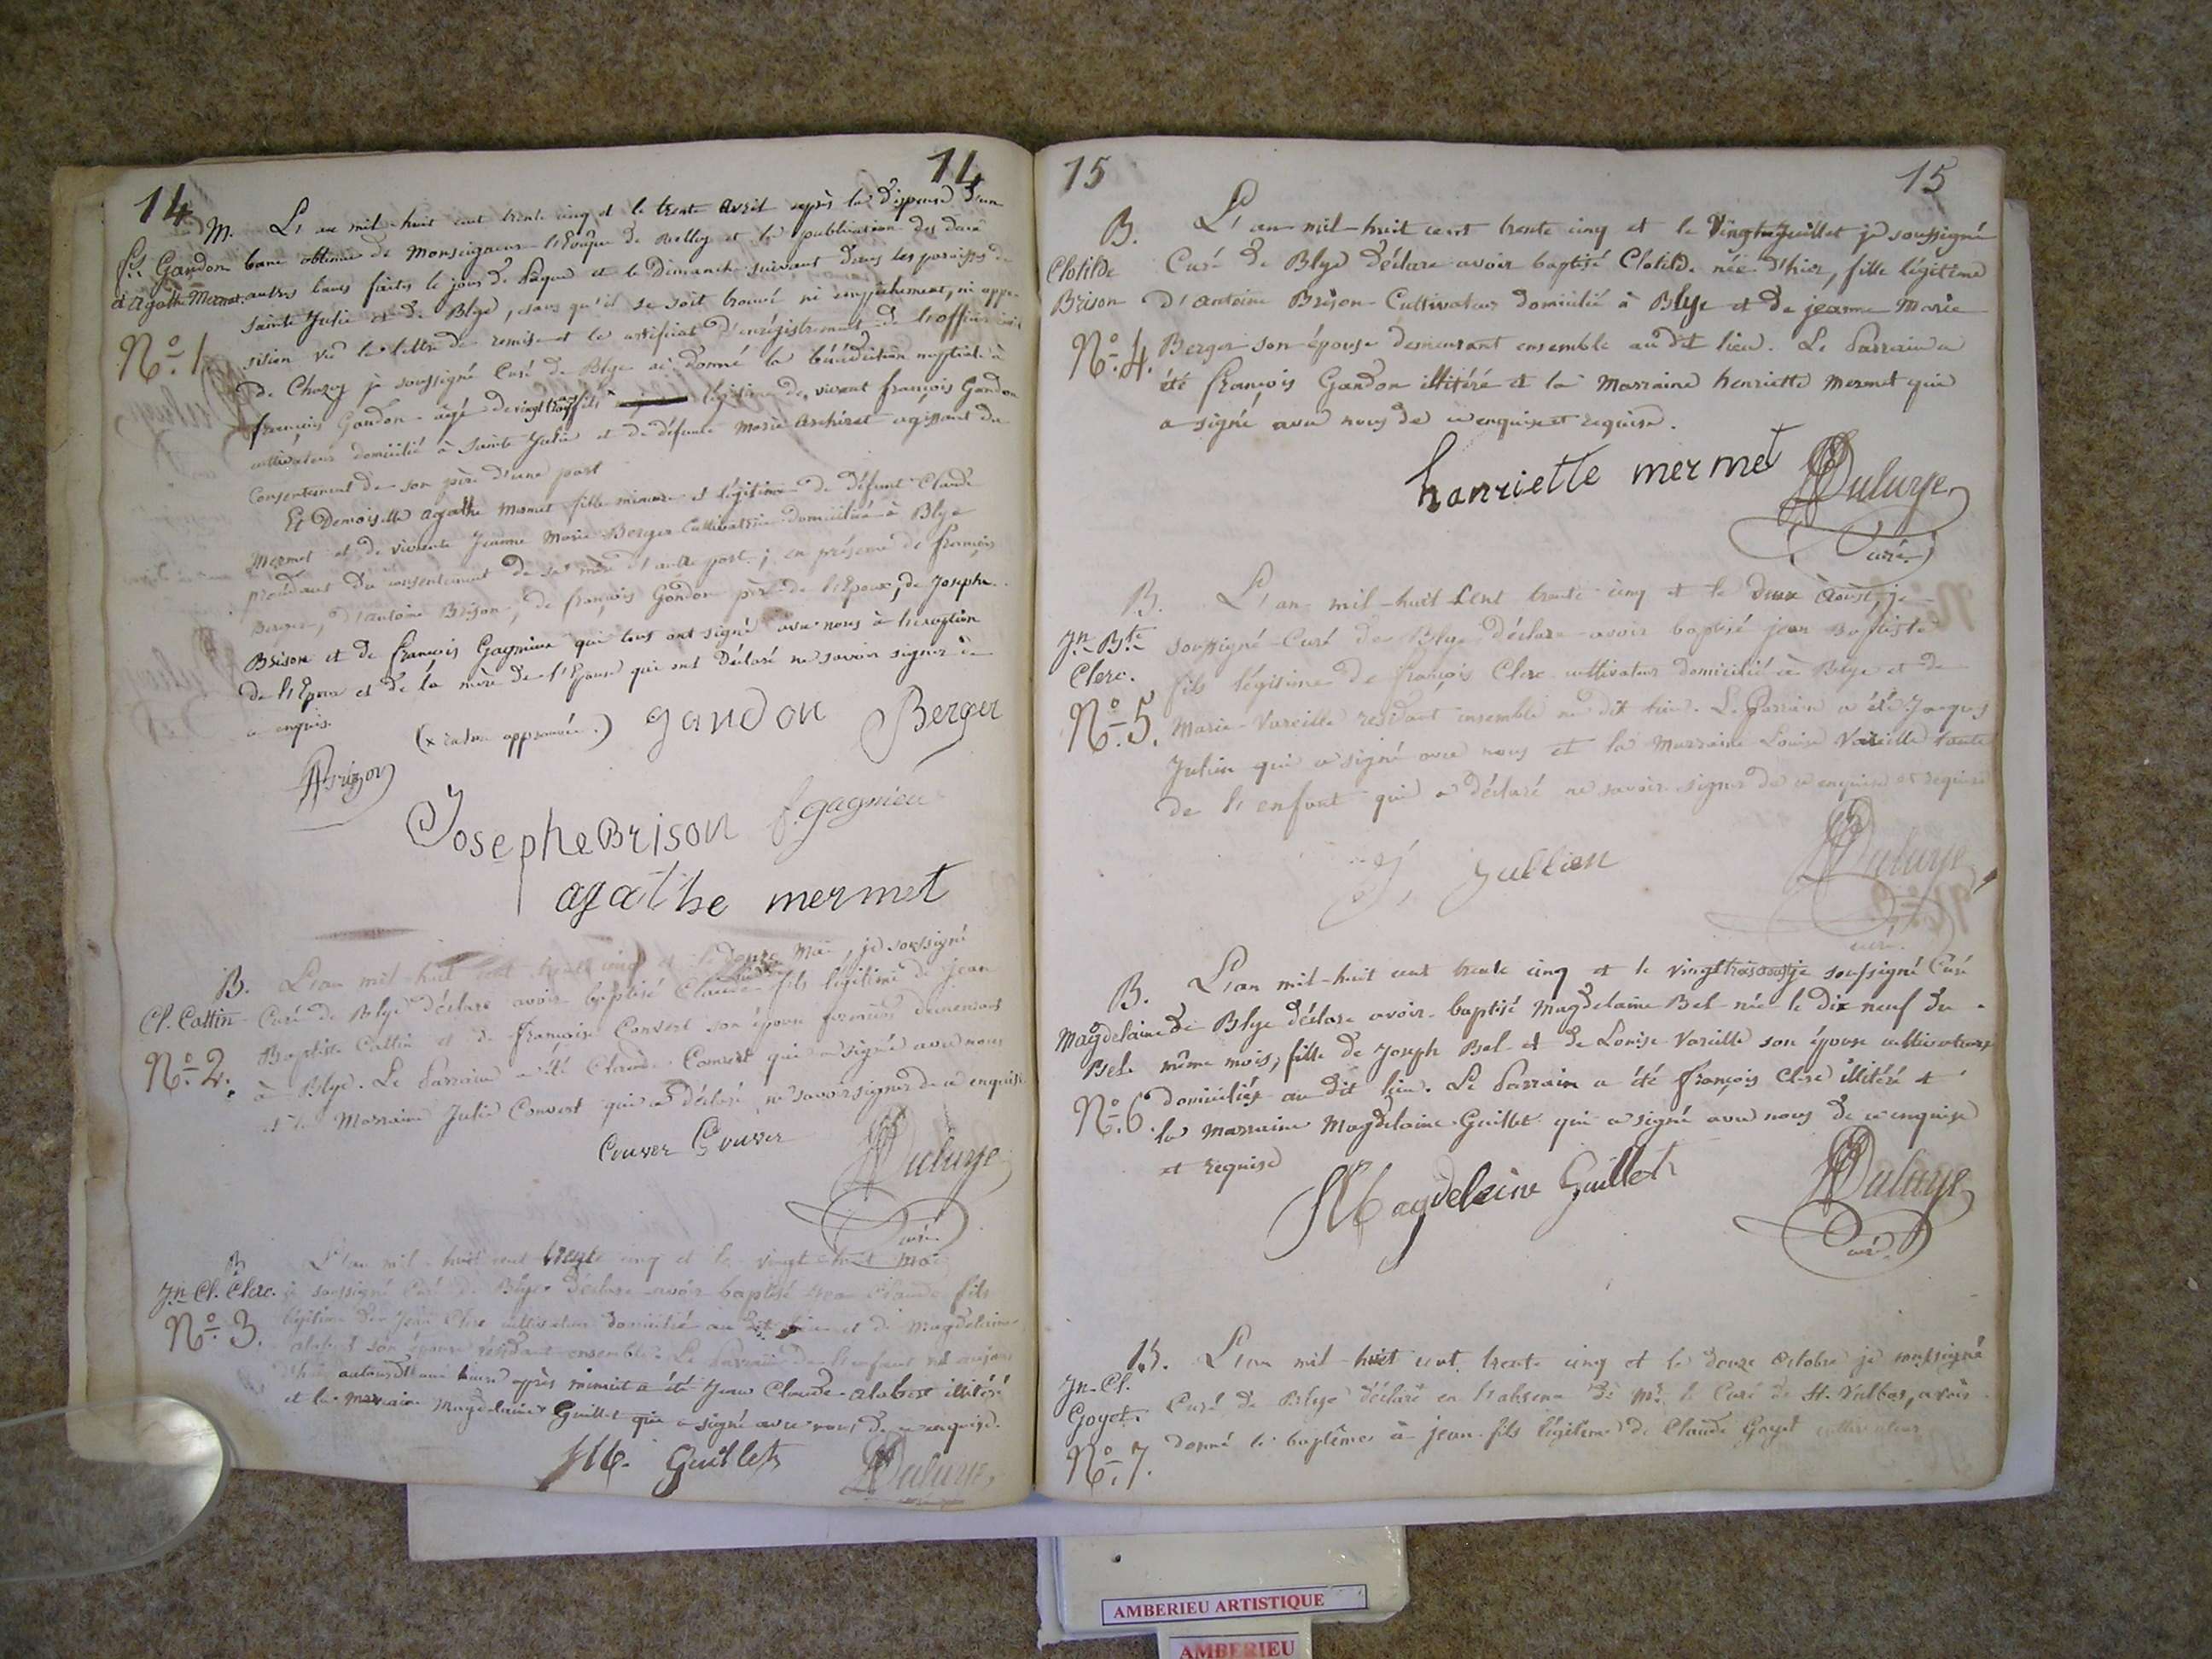 14 14
M. L'an mil-huit cent trente cinq et le trente avril après la dispense d'un
fs Gandon banc obtenue de Monseigneur l'Evêque de Belley et la publication des deux
et Agathe Mermet autres bancs faites le jour de Pâque et le Dimanche suivant dans les paroisses de
Sainte Julie et de Blye, sans qu'il se soit trouvé ni empêchement, ni oppo-
No. 1. sition vu la lettre de remise et le certificat d'enrégistrement de l'officier
de Chazey je soussigné Curé de Blye ai donné la bénédiction nuptiale à
françois Gandon âgé de vingt fils légitime de vivant françois Gandon
cultivateur domicilié à Sainte Julie et de défunte Marie agissant du
Consentement de son père d'une part
Et Demoiselle agathe Mermet fille mineure et légitime de défunt Claude
Mermet et de vivante Jeanne Marie Berger Cultivatrice domiciliée à Blye
procédant du consentement de sa mère d'autre part ; en présence de françois
Berger, d'antoine Brison, de françois Gandon père de l'Epoux, de Josephe
Brison et de françois Gagnieux qui tous ont signé avec nous à l'exception
de l'Epoux et de la mère de l'Epouse qui ont déclaré ne savoir signer de
ce enquis.
(x rature approuvée.) gandon Berger
Brizon
Josephe Brison f. gagnieu
agathe mermet
B. L'an mil-huit cent trente cinq et le douze Mai, je soussigné
Cl. Cattin Curé de Blye déclare avoir baptisé Claude fils légitime de Jean
Baptiste Cattin et de françoise Convert son épouse demeurant
No. 2. à Blye. Le Parrain a été Claude Convert qui a signé avec nous
et la Marraine Julie Convert qui a déclaré ne savoir signer de ce enquise
Couver Couver Duluye
curé.
B L'an mil-huit cent trente cinq et le vingt Mai
Jn Cl. Clerc. je soussigné Curé de Blye déclare avoir baptisé Jean Claude fils
No. 3. légitime de Jean Clerc cultivateur domicilié au dit lieu et de Magdelaine
alabert son épouse résidant ensemble. Le Parrain de l'enfant né
heure après minuit a été Jean Claude alabert illitéré
et la Marraine Magdelaine Guillet qui a signé avec nous de ce enquise.
M. Guillet Duluye
15 15
B. L'an mil-huit cent trente cinq et le Vingt Juillet je soussigné
Clotilde Curé de Blye déclare avoir baptisé Clotilde née d'hier, fille légitime
Brison d'antoine Brison Cultivateur domicilié à Blye et de jeanne Marie
No. 4. Berger son épouse demeurant ensemble au dit lieu. Le Parrain a
été françois Gandon illitéré et la Marraine henriette Mermet qui
a signé avec nous de ce enquise et requise.
hanriette mermet Duluye
curé
B. L'an mil-huit Cent trente cinq et le deux Août, je
Jn Bte soussigné Curé de Blye déclare avoir baptisé jean Baptiste
Clerc. fils légitime de françois Clerc cultivateur domicilié à Blye et de
No. 5. Marie Vareille résidant ensemble au dit lieu. Le Parrain a été Jacques
Julien qui a signé avec nous et la Marraine Louise Vareille tante
de l'enfant qui a déclaré ne savoir signer de ce enquise et requise
J, Jullien Duluye
curé.
B. L'an mil-huit cent trente cinq et le vingt trois août je soussigné Curé
Magdelaine de Blye déclare avoir baptisé Magdelaine Bel née le dix neuf du
Bel. même mois, fille de Joseph Bel et de Louise Vareille son épouse cultivateurs
No. 6. domiciliés au dit lieu. Le Parrain a été françois Clerc illitéré et
la Marraine Magdelaine Guillet qui a signé avec nous de ce enquise
et requise
Magdeleine Guillet Duluye
curé.
B. L'an mil-huit cent trente cinq et le douze Octobre je soussigné
Jn-Cl. Curé de Blye déclare en l'absence de Mr. le Curé de St. Vulbas, avoir
Goyet. donné le baptême à jean fils légitime de Claude Goyet cultivateur
No. 7.
AMBERIEU ARTISTIQUE
AMBERIEU